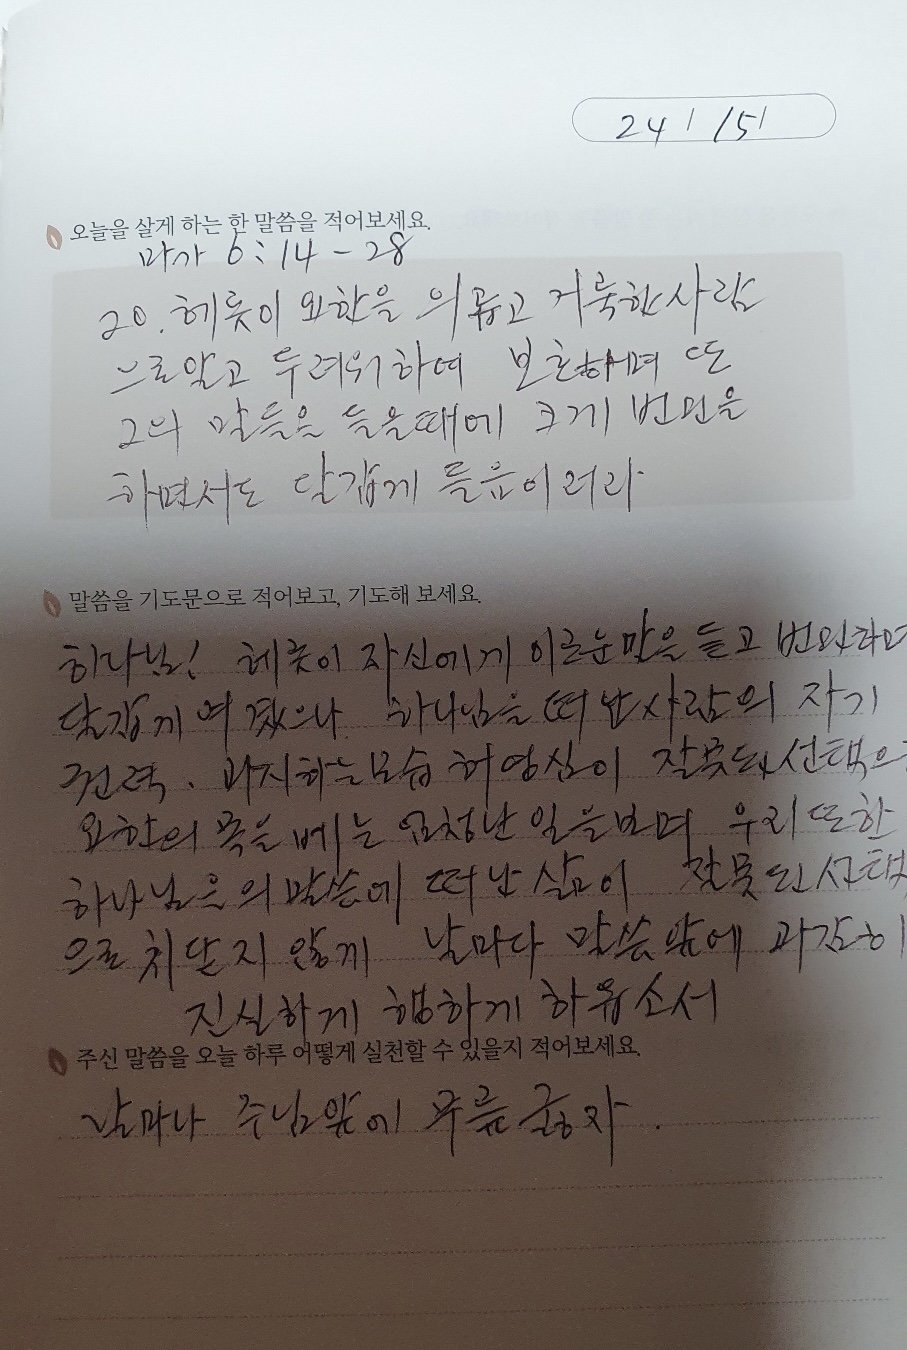 24 1 / 5 1
오늘을 살게 하는 한 말씀을 적어보세요.
마가 6:14-28
20. 헤롯이 요한을 의롭고 거룩한 사람
으로 알고 두려워하여 보호하며 또
그의 말을 들을때에 크게 번민을
하면서도 달갑게 들음이러라
말씀을 기도문으로 적어보고, 기도해 보세요.
하나님! 헤롯이 자신에게 이르는말을 듣고 번민하며
달갑게 여겼으나 하나님을 떠난사람의 자기
권력. 과시하는모습 허영심이 잘못된선택으로
요한의 목을 베는 엄청난 일을보며 우리 또한
하나님의 말씀에 떠난 삶이 잘못된선택
으로 치닫지 않게 날마다 말씀앞에 과감히
진실하게 행하게 하옵소서
주신 말씀을 오늘 하루 어떻게 실천할 수 있을지 적어보세요.
날마다 주님앞에 무릎꿇자.